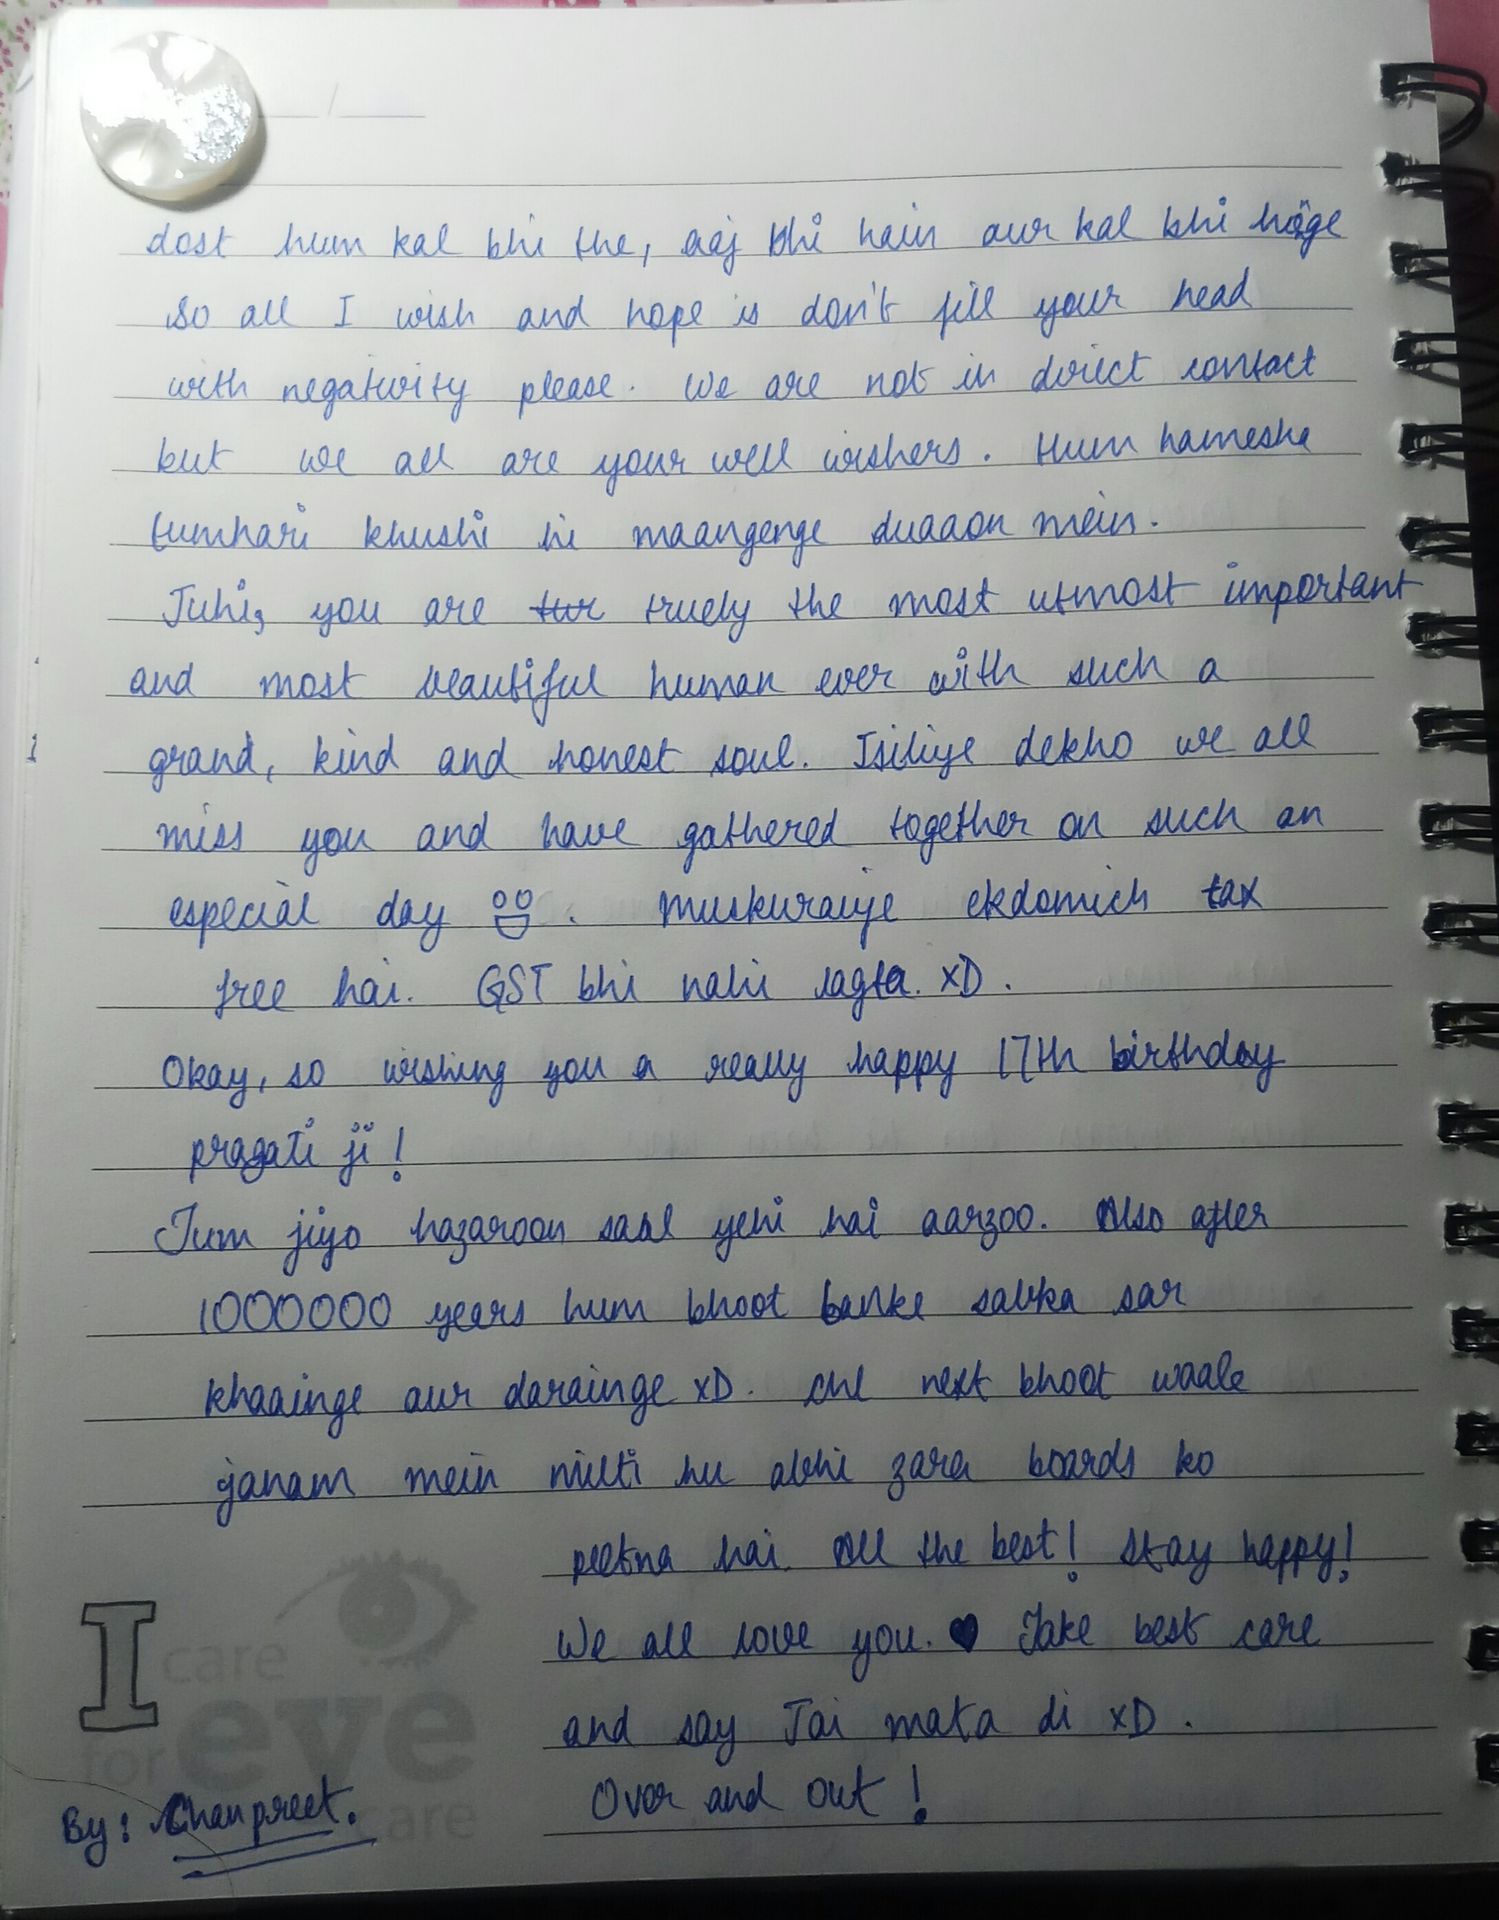 dost hum kal bhi the, aaj bhi hain aur kal bhi hoge
so all I wish and hope is don't fill your head
with negativity please. We are not in direct contact
but we all are your well wishers. Hum hamesha
tumhari khushi hi maangenge duaaon mein.
Juhi, you are tur truely the most utmost important
and most beautiful human ever with such a
grand, kind and honest soul. Isiliye dekho we all
miss you and have gathered together on such an
especial day. Muskuraiye ekdamich tax
free hai. GST bhi nahi lagta. xD.
Okay, so wishing you a really happy 17th birthday
pragati ji!
Tum jiyo hazaroon saal yehi hai aarzoo. Also after
1000000 years hum bhoot banke sabka sar
khaainge aur darainge xD. chl next bhoot waale
janam mein milti hu abhi zara boards ko
peetna hai. All the best! Stay happy!
We all love you. ♥ Take best care
and say Jai mata di xD.
Over and out!
I care
for eye
care
By: Chanpreet.